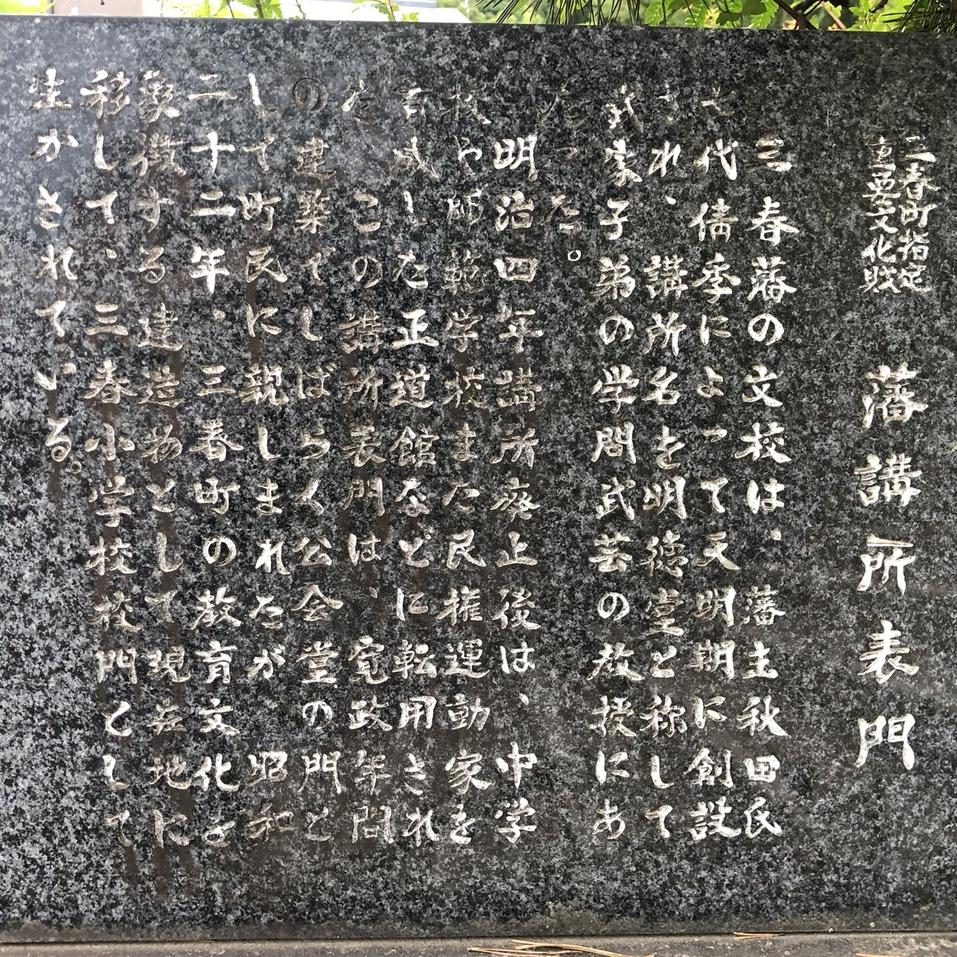 三春町指定
重要文化財
藩講所表門
三春藩の文校は、藩主秋田氏
七代倩季によって天明期に創設
され、講所名を明徳堂と称して
武家子弟の学問武芸の教授にあ
たった。
明治四年講所廃止後は、中学
校や師範学校また民権運動家を
育成した正道館などに転用され
た。この講所表門は、寛政年間
の建築でしばらく公会堂の門と
して町民に親しまれたが 昭和
二十二年、三春町の教育文化を
象徴する建造物として現在地に
移して、三春小学校校門として
生かされている。